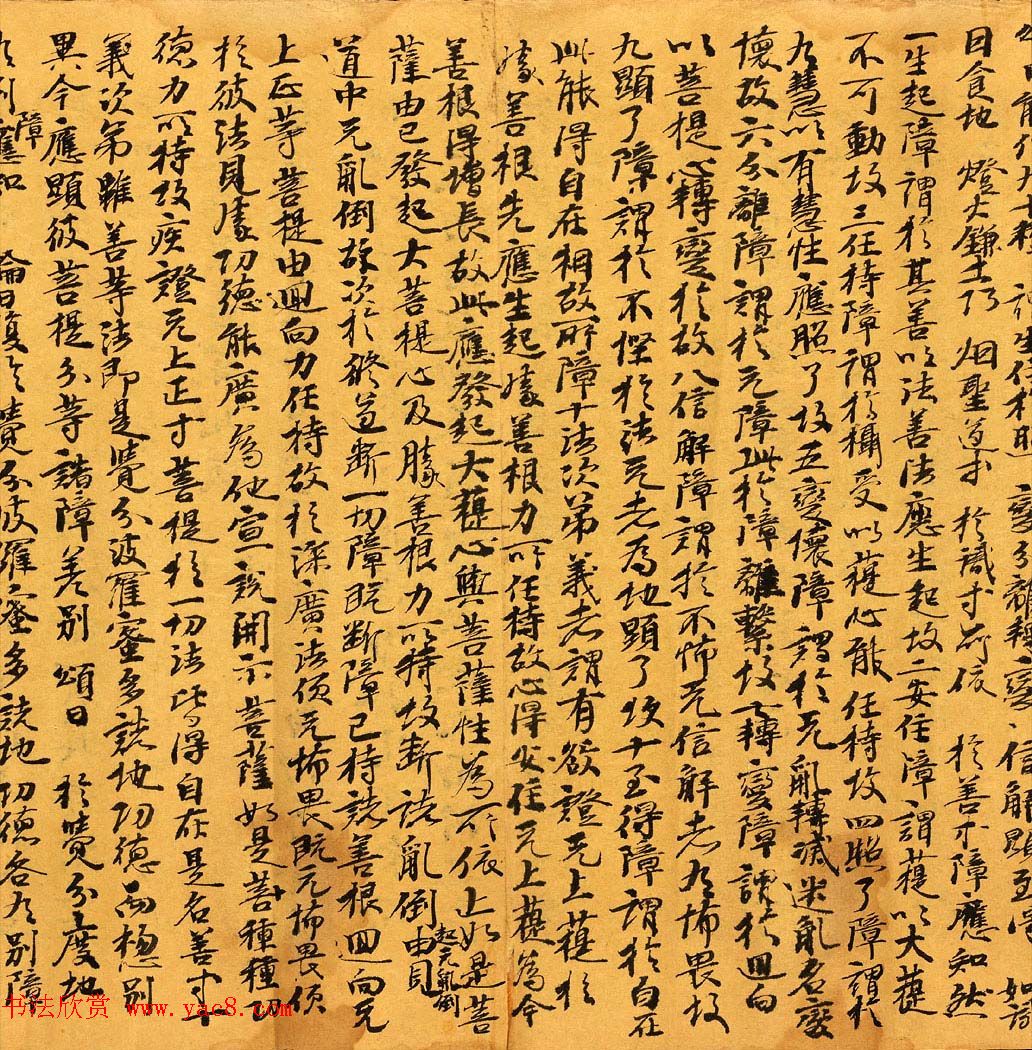 因食地 燈火鎌工巧 烟聖道等 於識等所依 於善等障應知然
一生起障謂於其善以法善法應生起故二安住障謂菩提以大菩提
不可動故三任持障謂於攝受以菩提心能任持故四照了障謂於
有慧以有慧性應照了故五變壞障謂於无亂轉滅迷亂名變
壞故六分離障謂於无障此於障離繫故七轉變障謂於迴向
以菩提心轉變相故八信解障謂於不怖无信解者有怖畏故
九顯了障謂於不慳於法无者為他顯了故十至得障謂於自在
此能得自在相故所障十法次第義者謂有欲證无上菩提於
勝善根先應生起勝善根力所任持故必得安住无上菩提為令
善根得增長故此應發起大菩提心與菩薩性為所依止如是菩
薩由已發起大菩提心及勝善根力所持故斷諸亂倒由見
起无亂倒
道中无亂倒故次於修道斷一切障既斷障已持諸善根迴向无
上正等菩提由迴向力任持故於深廣法便无怖畏既无怖畏便
於彼法見勝功德能廣為他宣說開示菩薩如是菩種種功
德力所持故疾證无上正等菩提於一切法皆得自在是名善等十
義次第雖善等法即是覺分波羅蜜多諸地功德而總別
異今應顯彼菩提分等諸障差別 頌曰 於覺分度地
有別障應知 論曰復於覺分波羅蜜多諸地功德各有別障
书法欣赏 www.yac8.com